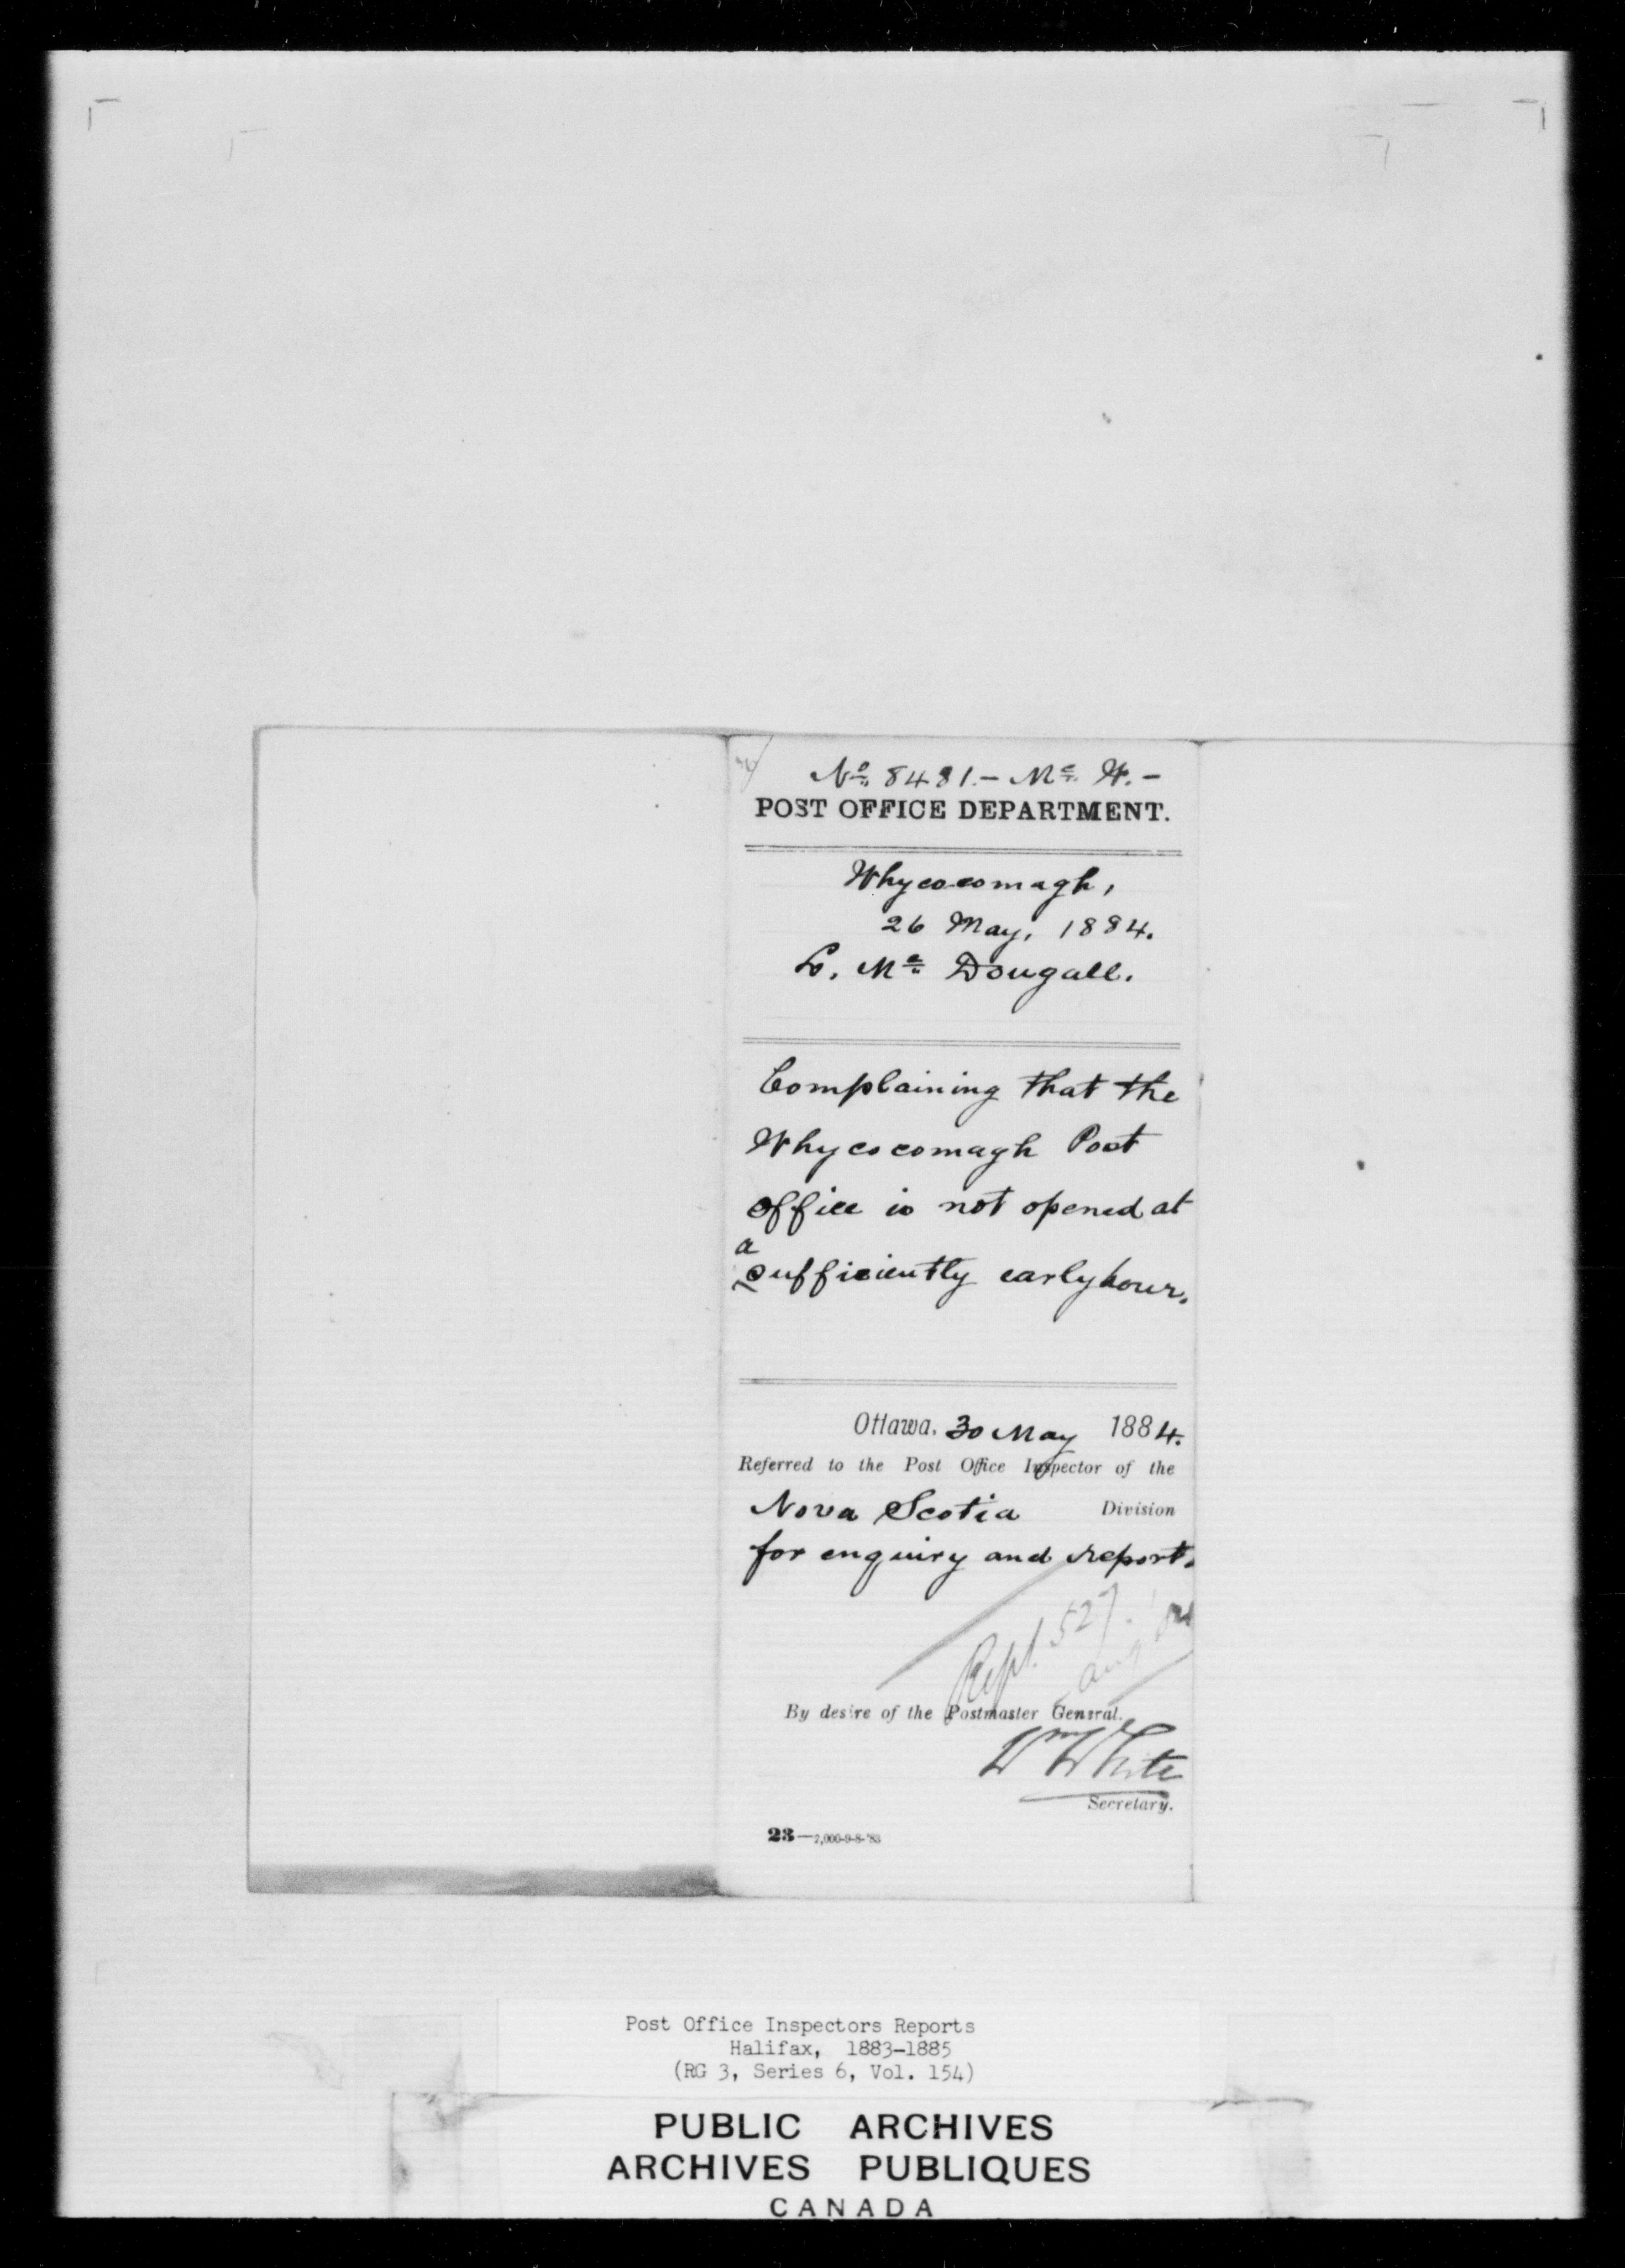 No. 8481.- Mc. W.-
POST OFFICE DEPARTMENT.
Whycocomagh,
26 May, 1884.
L. Mc Dougall.
Complaining that the
Whycocomagh Post
Office is not opened at
a
sufficiently early hour.
Ottawa. 30 May 1884.
Referred to the Post Office Inspector of the
Nova Scotia Division
for enquiry and report.
Rept. 527.
Aug
By desire of the Postmaster General.
Wm White
Secretary.
23—7,000-9-8-'83
Post Office Inspectors Reports
Halifax, 1883-1885
(RG 3, Series 6, Vol. 154)
PUBLIC ARCHIVES
ARCHIVES PUBLIQUES
CANADA